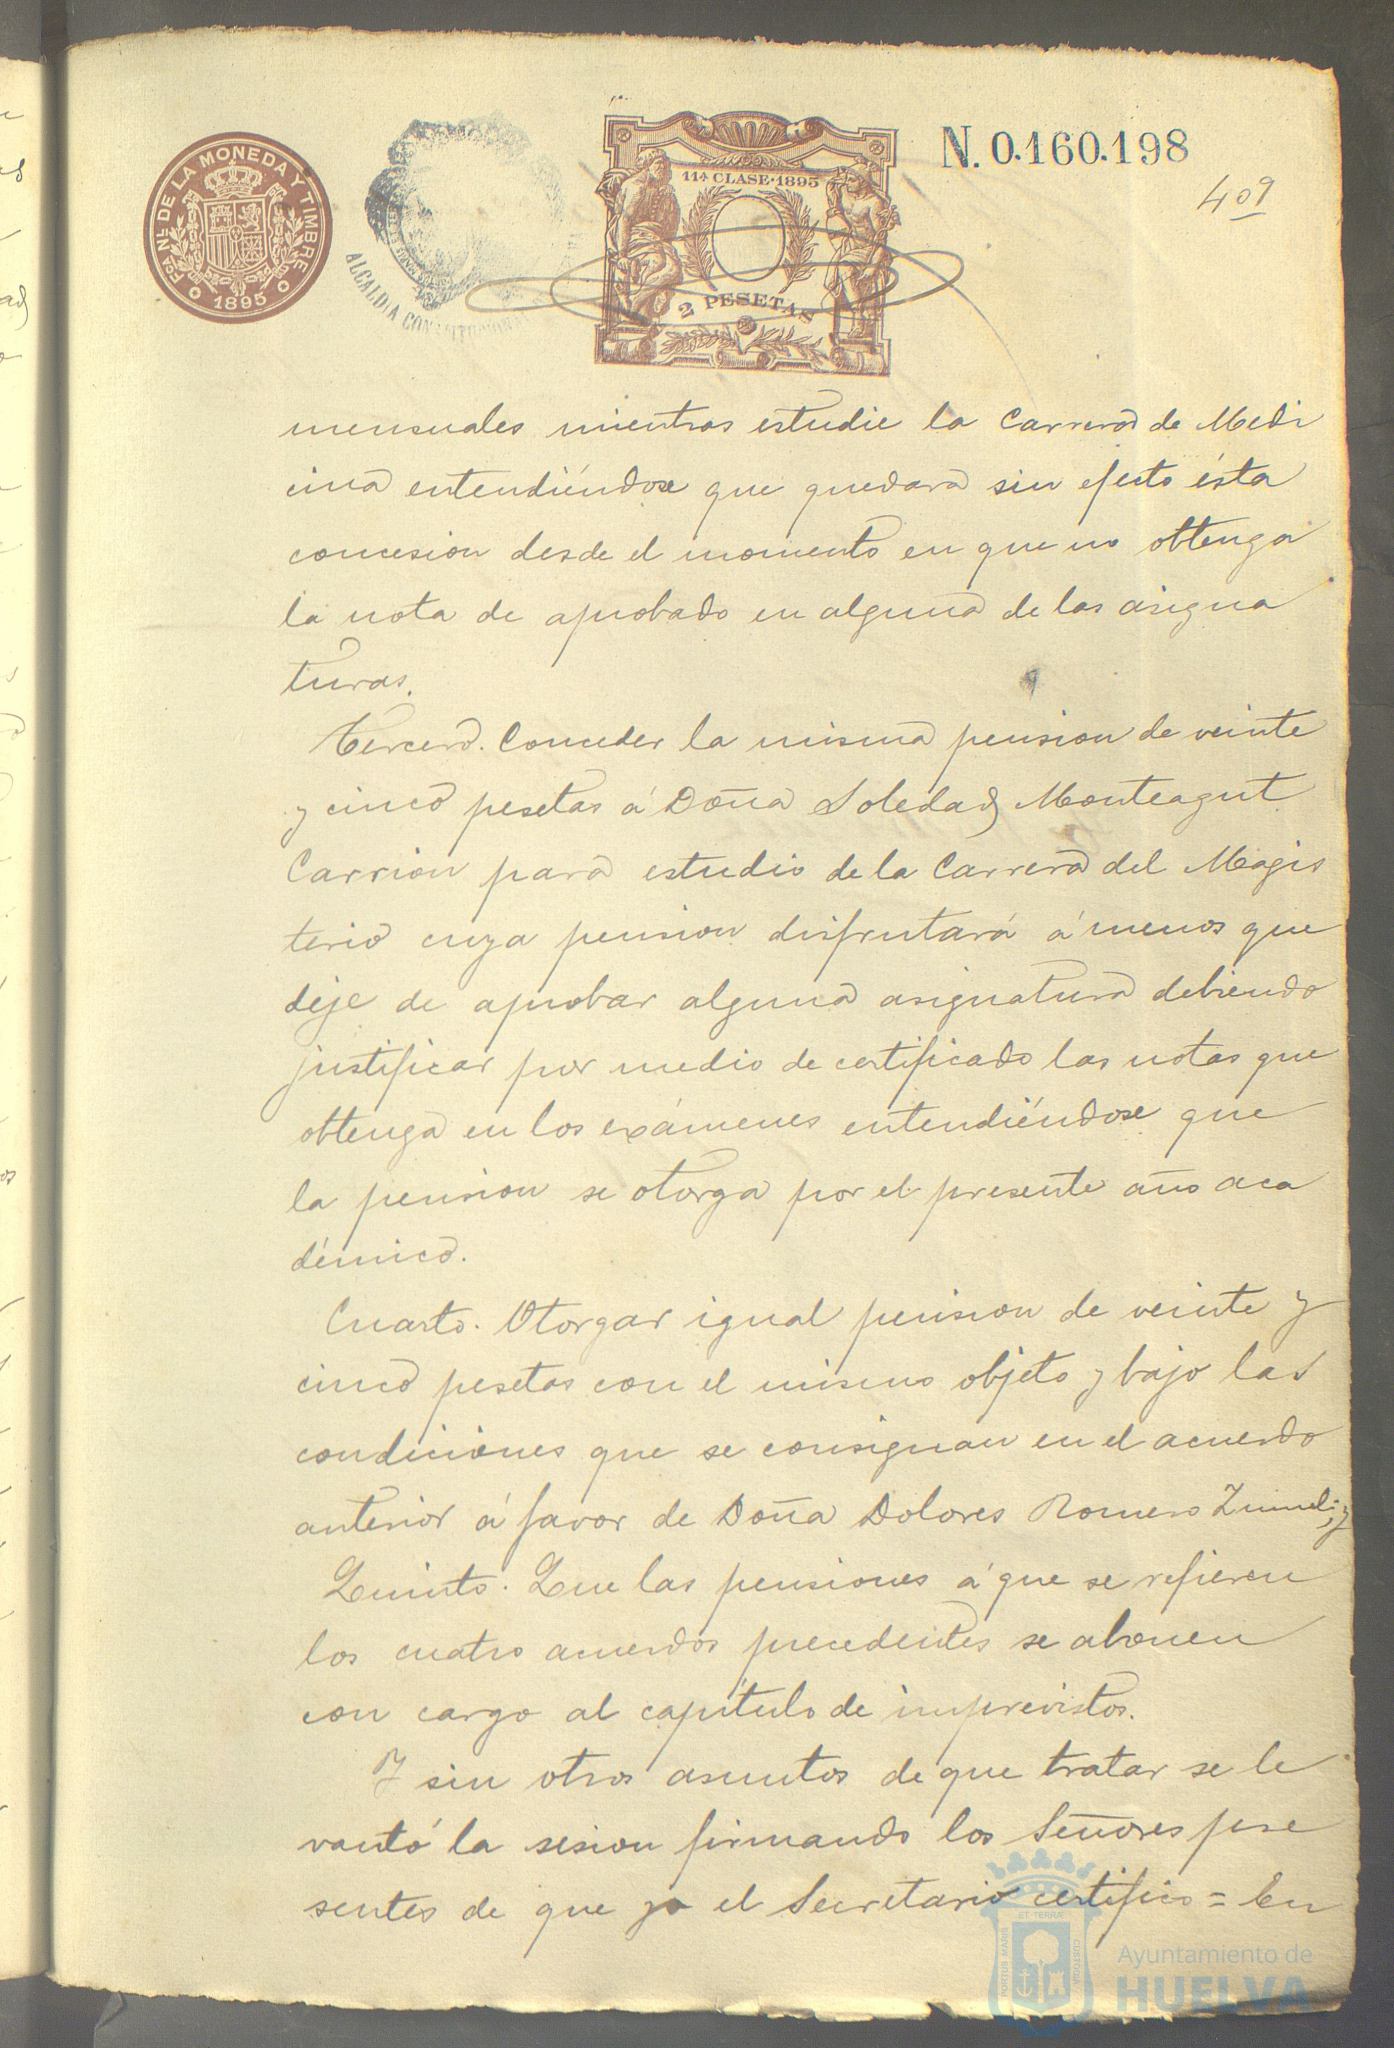 FCA. NL. DE LA MONEDA Y TIMBRE
1895
ALCALDIA CONSTITUCIONAL
11ª CLASE·1895
2 PESETAS
N. 0.160.198
409
mensuales mientras estudie la Carrera de Medi
cina entendiéndose que quedara sin efecto ésta
concesion desde el momento en que no obtenga
la nota de aprobado en alguna de las asigna
turas.
Tercero. Conceder la misma pension de veinte
y cinco pesetas á Doña Soledad Monteagut
Carrion para estudio de la Carrera del Magis
terio cuya pension disfrutará á menos que
deje de aprobar alguna asignatura debiendo
justificar por medio de certificado las notas que
obtenga en los exámenes entendiéndose que
la pension se otorga por el presente año aca
démico.
Cuarto. Otorgar igual pension de veinte y
cinco pesetas con el mismo objeto y bajo las
condiciones que se consignan en el acuerdo
anterior á favor de Doña Dolores Romero
Quinto. Que las pensiones á que se refieren
los cuatro acuerdos precedentes se abonen
con cargo al capítulo de imprevistos.
Y sin otros asuntos de que tratar se le
vantó la sesion firmando los Señores pre
sentes de que yo el Secretario certifico = En
PORTUS MARIS ET TERRÆ CUSTODIA
Ayuntamiento de
HUELVA